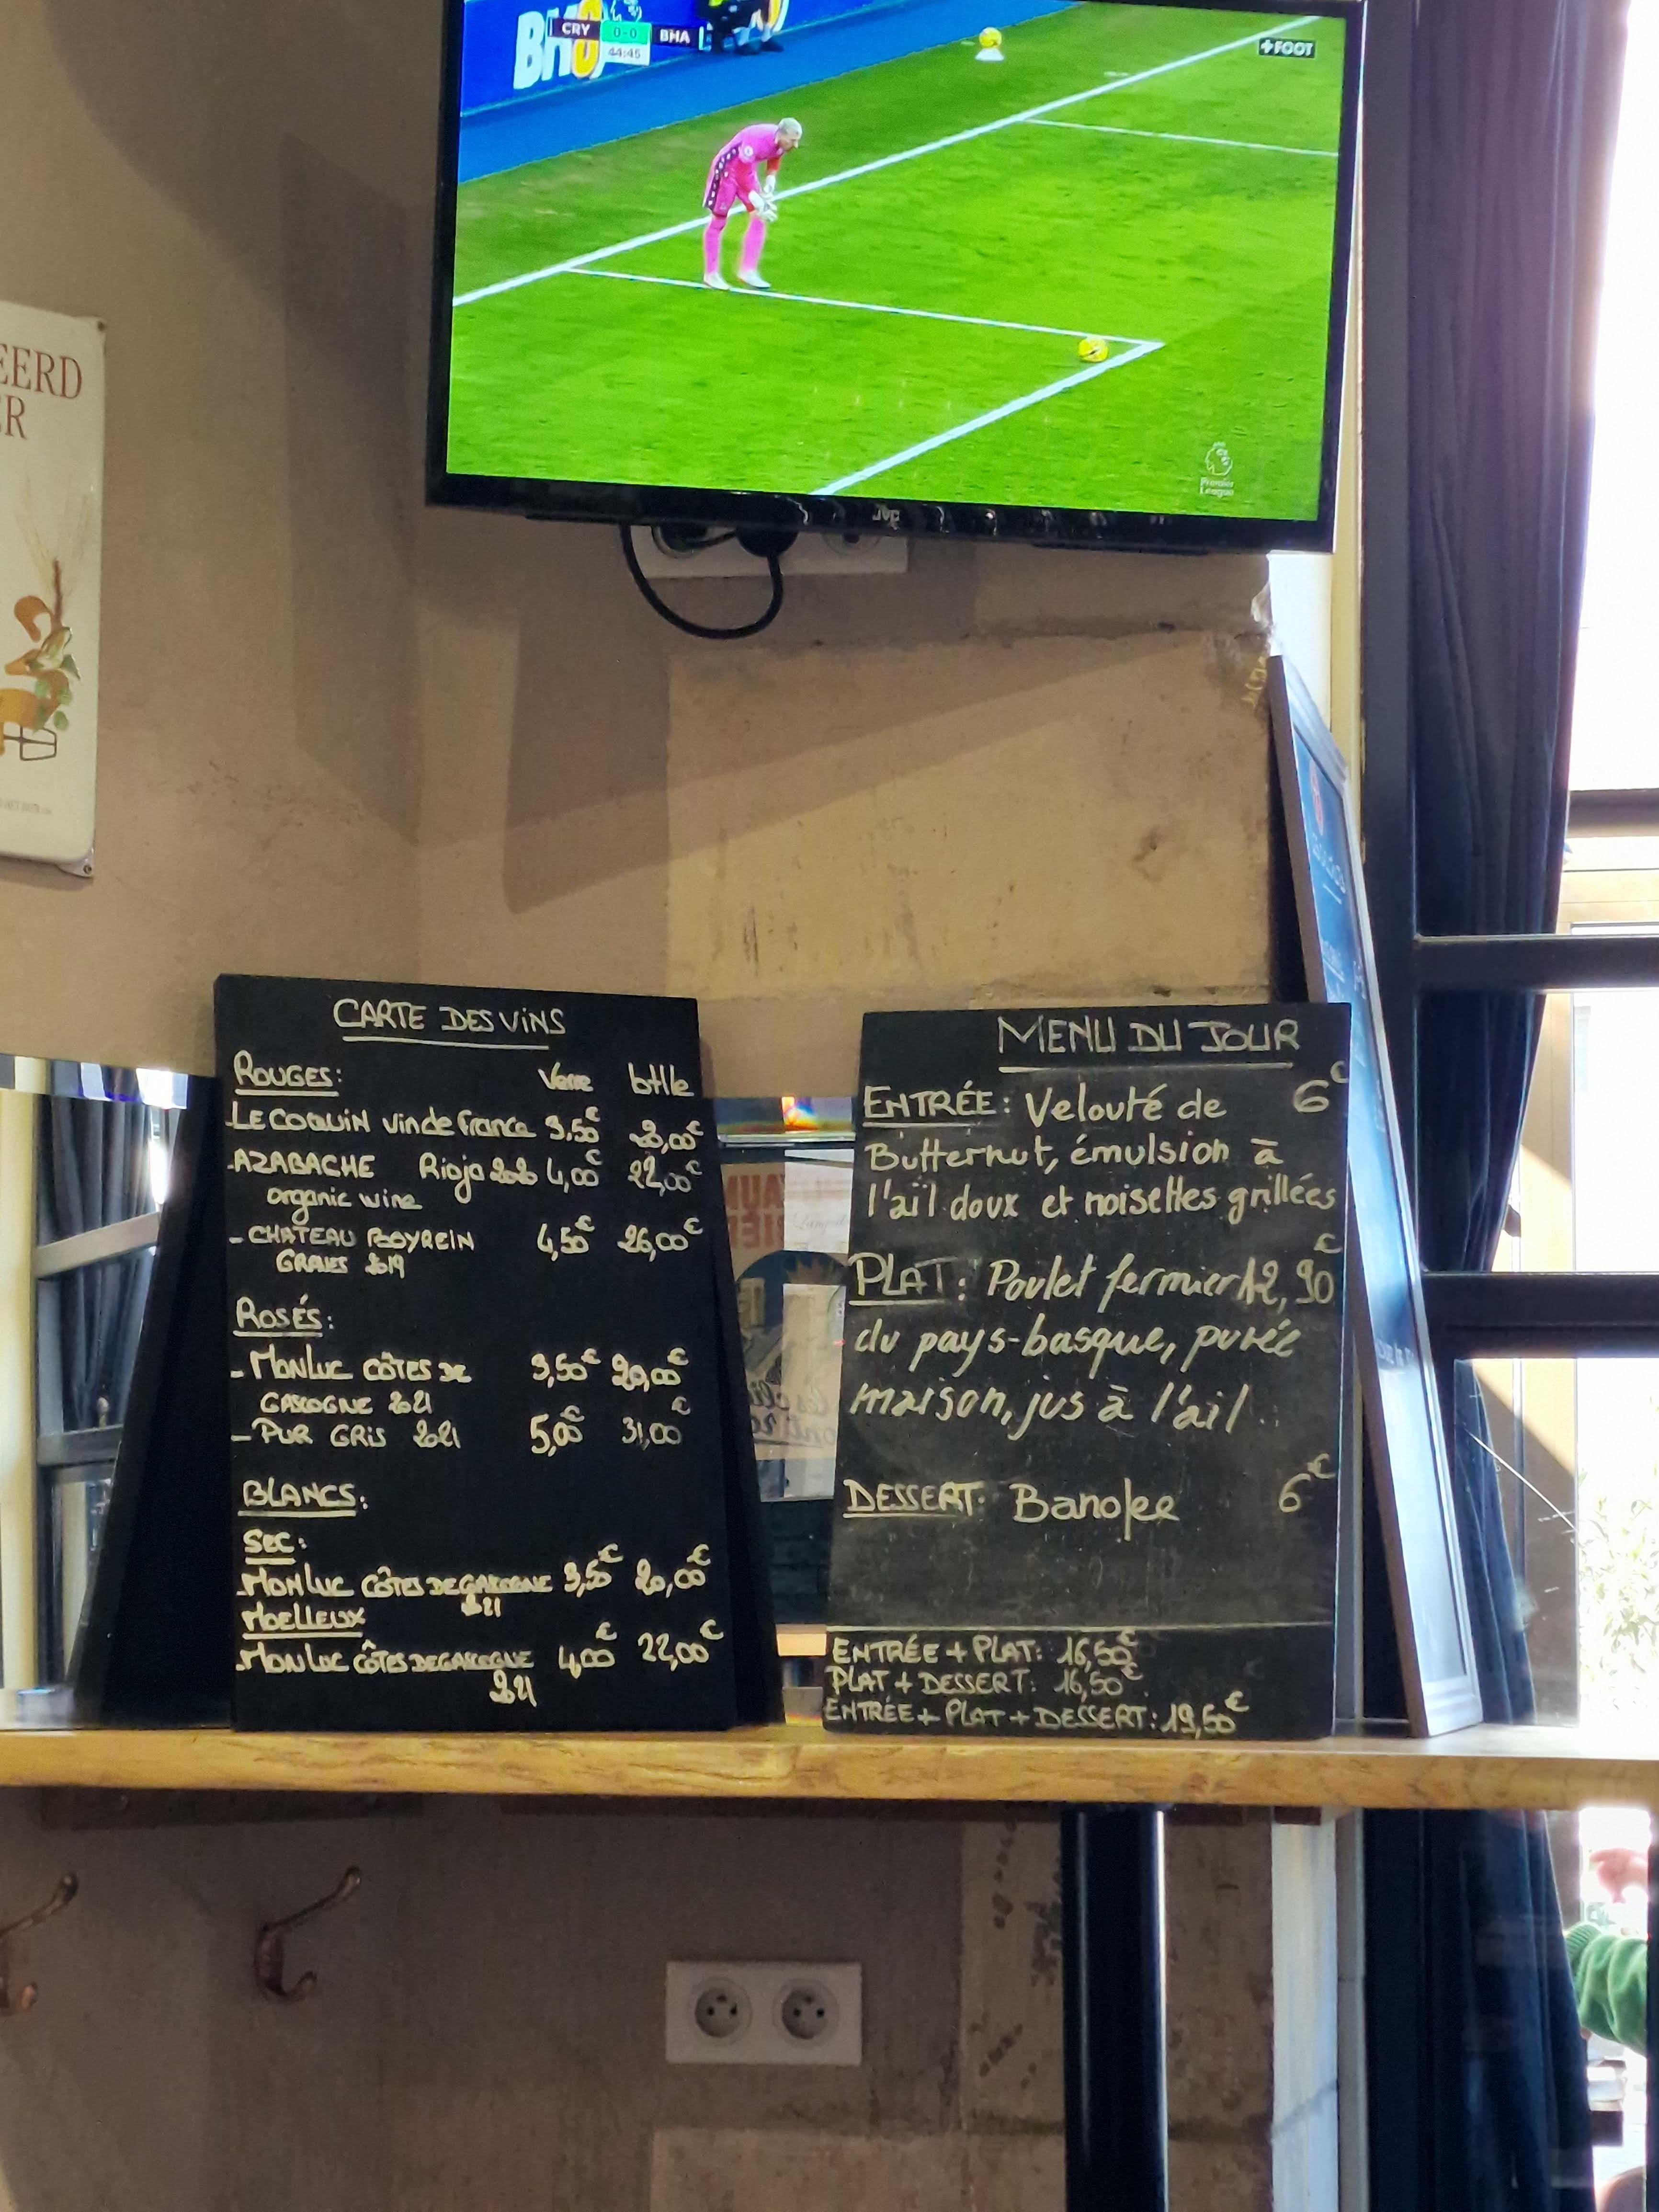 CRY 0-0 BHA
44:45
+FOOT
Premier
League
JVC
EERD
ER
CARTE DES VINS
ROUGES: Verre btlle
-LE COQUIN vin de France 3,50€ 20,00€
-AZABACHE Rioja 2020 4,00€ 22,00€
organic wine
- CHATEAU 4,50€ 26,00€
GRAVES 2019
ROSÉS:
- MONLUC CÔTES DE 3,50€ 20,00€
GASCOGNE 2021
- PUR GRIS 2021 5,00€ 31,00€
BLANCS:
SEC:
-MONLUC CÔTES DE GASCOGNE 3,50€ 20,00€
2021
MOELLEUX
-MONLUC CÔTES DE GASCOGNE 4,00€ 22,00€
2021
MENU DU JOUR
ENTRÉE: Velouté de 6€
Butternut, émulsion à
l'ail doux et noisettes grillées
PLAT: Poulet fermier 12,90€
du pays-basque, purée
maison, jus à l'ail.
DESSERT: Banofee 6€
ENTRÉE + PLAT: 16,50€
PLAT + DESSERT: 16,50€
ENTRÉE + PLAT + DESSERT: 19,50€